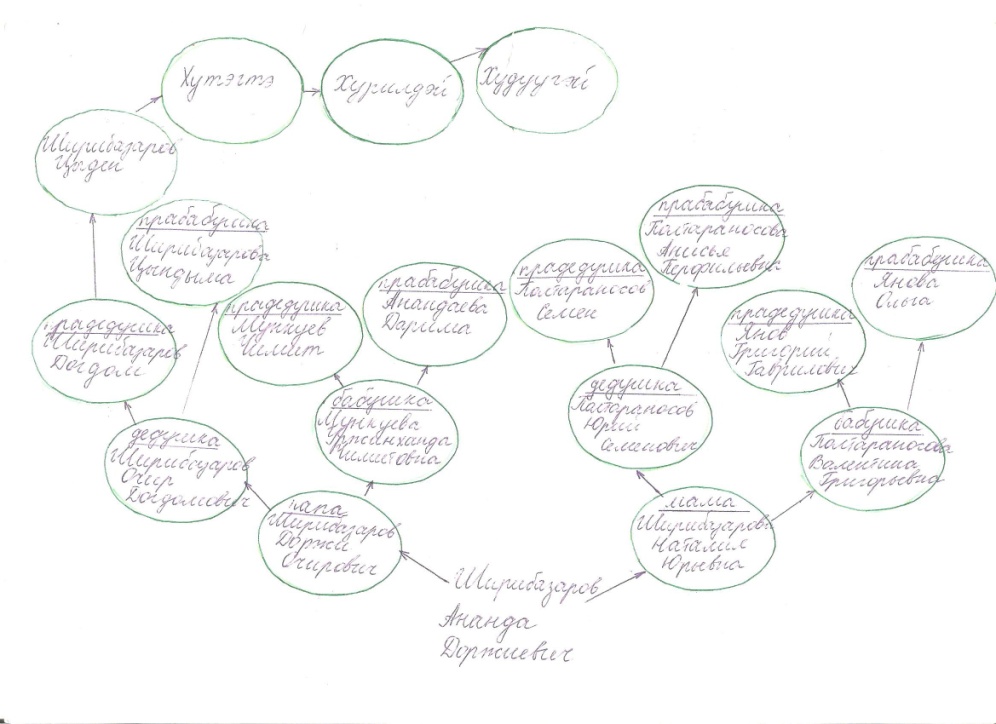 Хутэгтэ
Хурилдэй
Худуугэй
Ширибазаров
Цыден
прабабушка
Ширибазарова
Цындыма
прадедушка
Ширибазаров
Догдом
прадедушка
Мункуев
Чимит
прабабушка
Анандаева
Дарима
прадедушка
Пастараносов
Семен
прабабушка
Пастараносова
Анисья
Перфильевна
прадедушка
Янов
Григорий
Гаврилович
прабабушка
Янова
Ольга
дедушка
Ширибазаров
Очир
Догдомович
бабушка
Мункуева
дедушка
Пастараносов
Юрий
Семенович
бабушка
Пастараносова
Валентина
Григорьевна
папа
Ширибазаров
Доржи
Очирович
мама
Ширибазарова
Наталия
Юрьевна
Ширибазаров
Ананда
Доржиевич